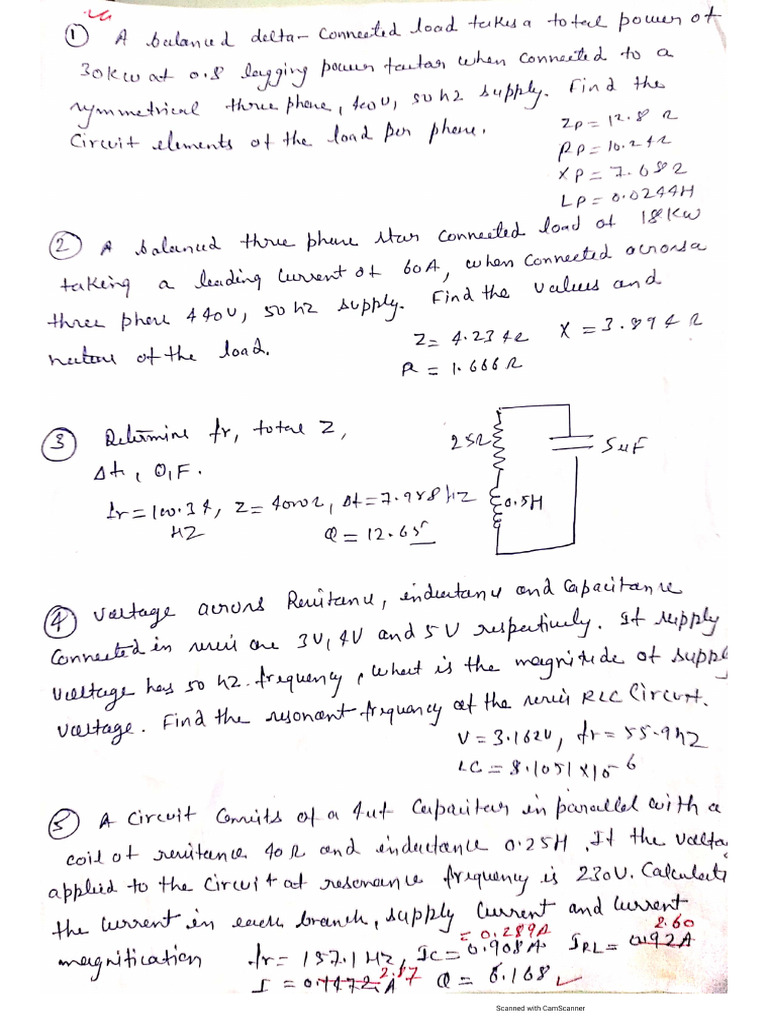 ① A balanced delta-connected load takes a total power of
30kW at 0.8 lagging power factor when connected to a
symmetrical three phase, 400V, 50 hz supply. Find the
Circuit elements of the load per phase.
Zp = 12.8 Ω
Rp = 10.24 Ω
Xp = 7.68 Ω
Lp = 0.0244H
② A balanced three phase star connected load of 18kW
taking a leading current of 60A, when connected across a
three phase 440V, 50 hz supply. Find the values and
nature of the load.
Z = 4.234 Ω X = 3.894 Ω
R = 1.666 Ω
③ Determine fr, total Z,
Δf, Q,F.
25Ω
5uF
0.5H
fr = 100.34, Z = 4000Ω, Δf = 7.958 HZ
HZ
Q = 12.65
④ Voltage across Resistance, inductance and Capacitance
Connected in series are 3V, 4V and 5V respectively. If supply
voltage has 50 hz. frequency, What is the magnitude of suppl
voltage. Find the resonant frequency of the series RLC Circuit.
V = 3.162V, fr = 55.9 hz
LC = 8.1051 X 10-6
⑤ A Circuit Consists of a 4uf Capacitor in parallel with a
coil of resistance 40 Ω and inductance 0.25H. If the volta
applied to the Circuit at resonance frequency is 230V. Calculate
the current in each branch, supply current and current
magnification
fr = 157.1 Hz, Ic = 0.908A = 0.289A IRL = 0.92A 2.60
I = 2.87 A Q = 6.168
Scanned with CamScanner